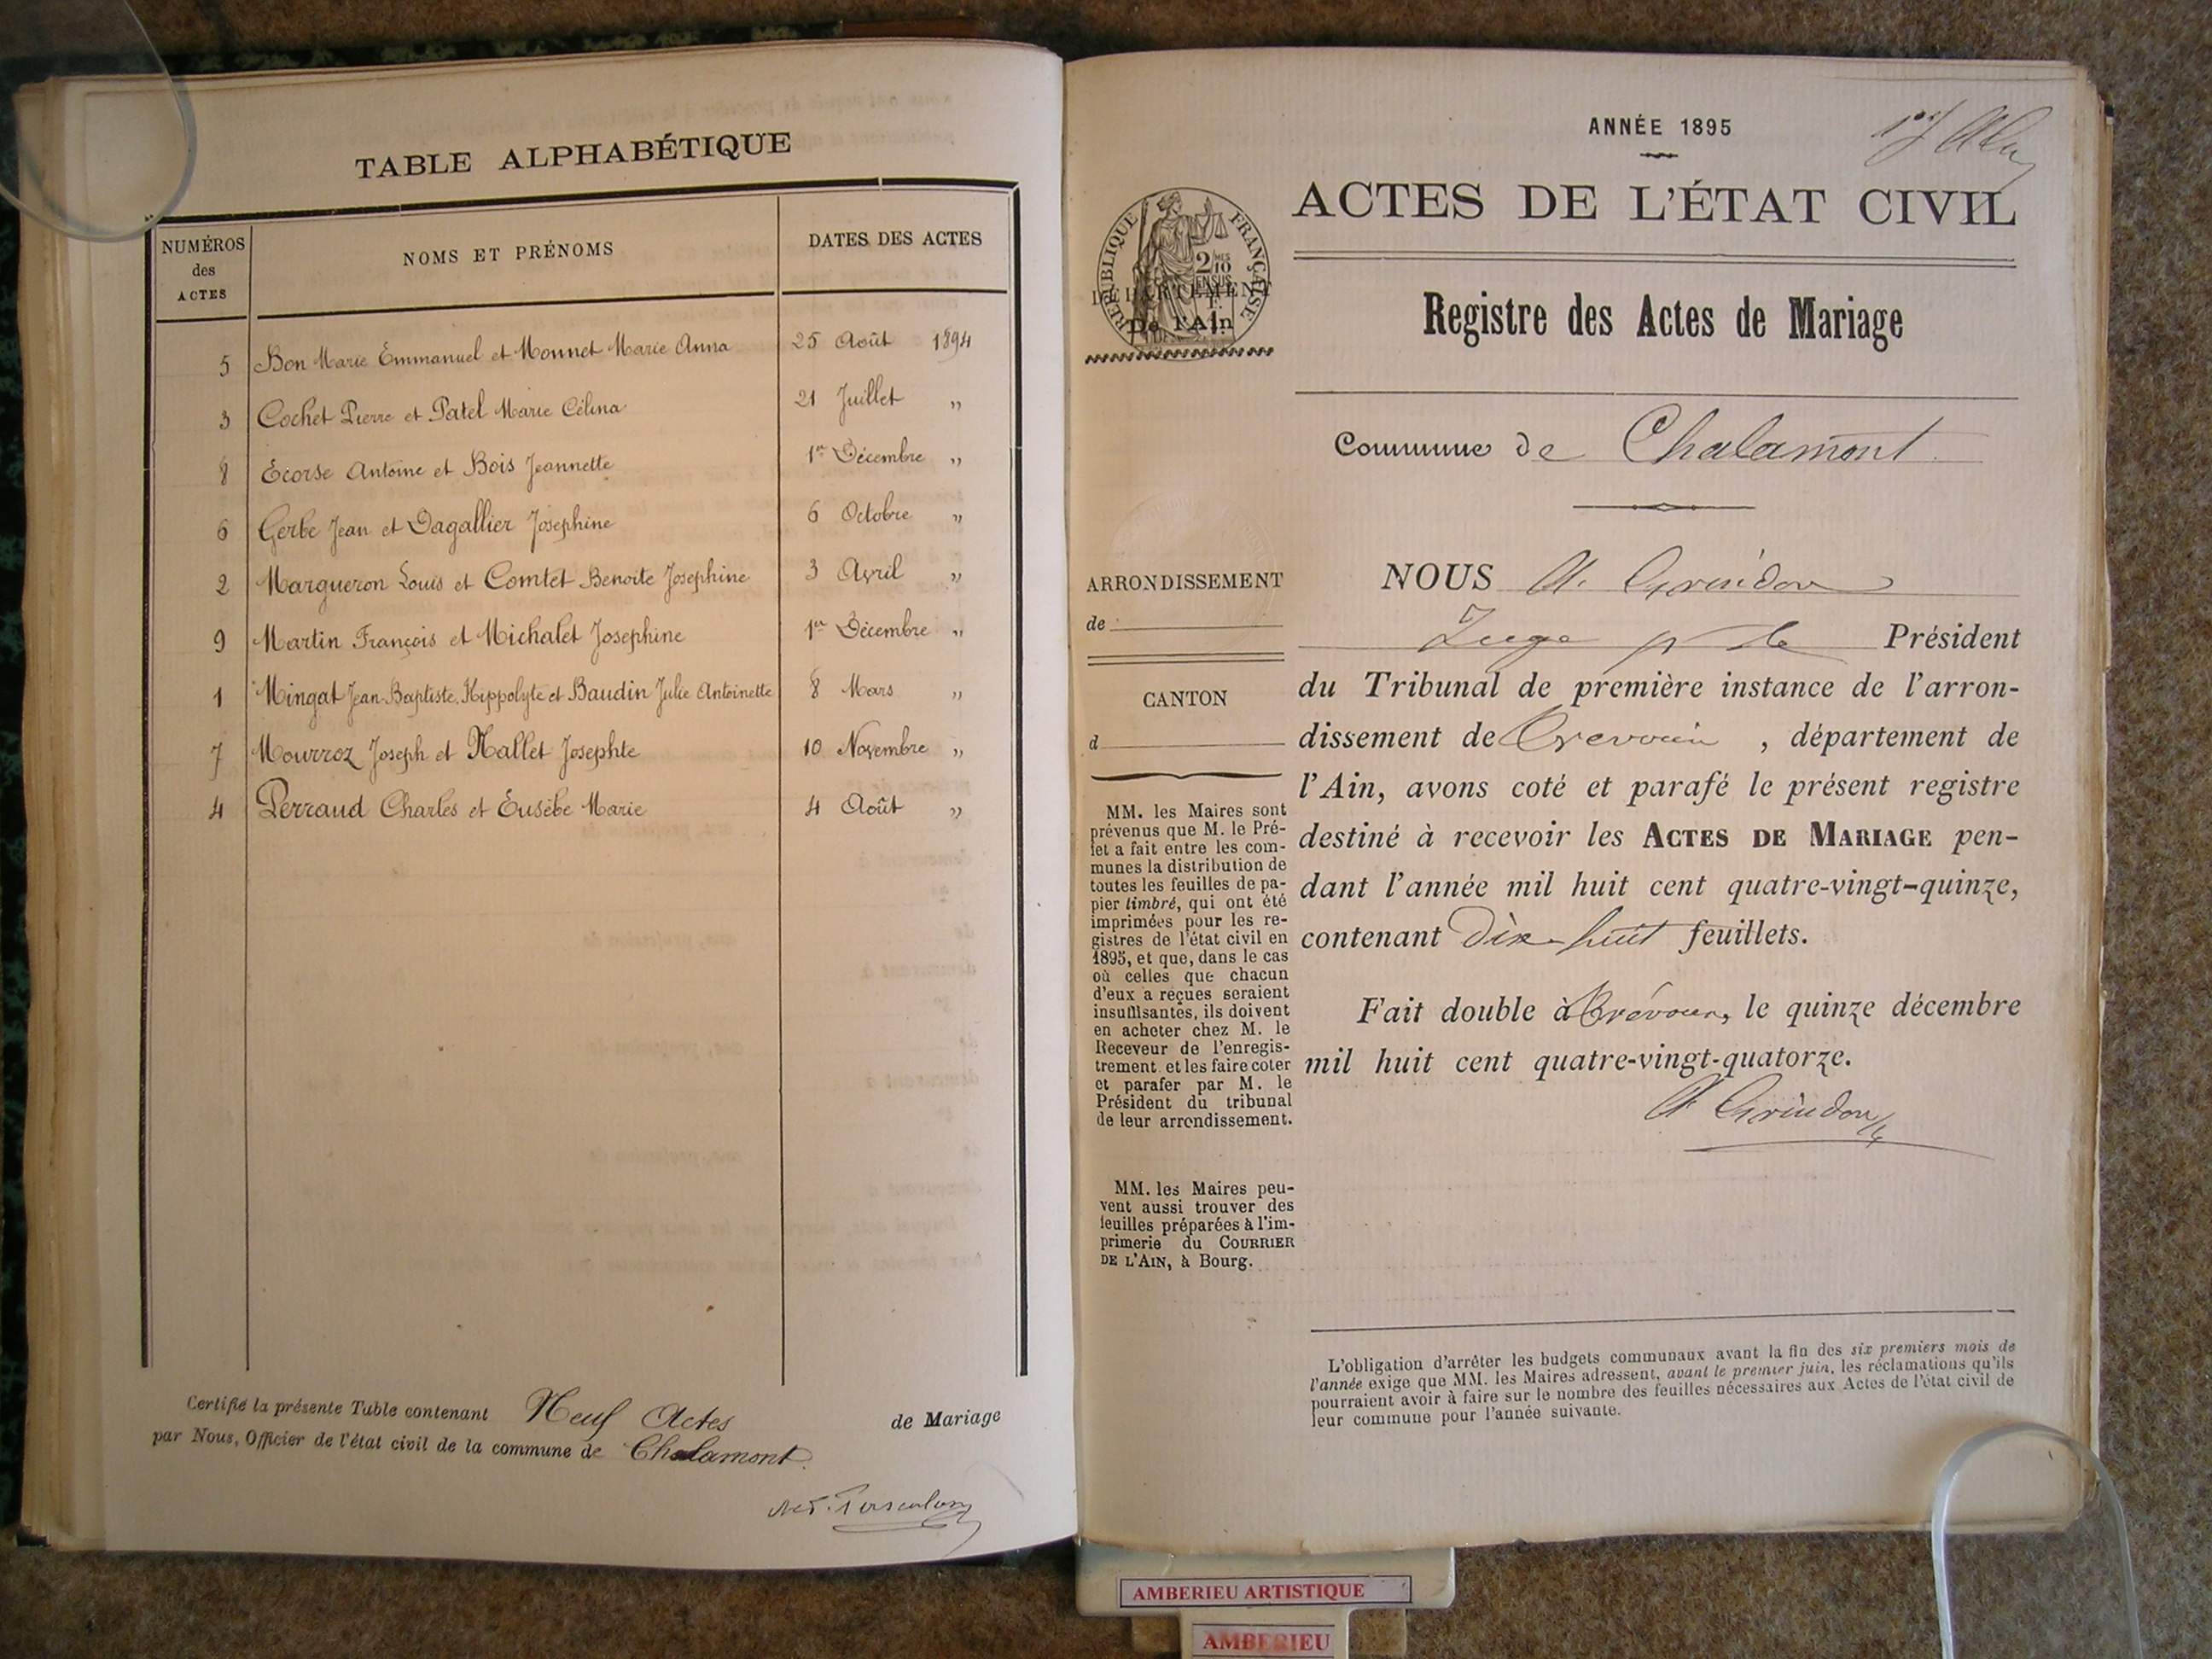 TABLE ALPHABÉTIQUE
NUMÉROS
des
ACTES
NOMS ET PRÉNOMS
DATES DES ACTES
5 Bon Marie Emmanuel et Monnet Marie Anna 25 Août 1894
3 Cochet Pierre et Patel Marie Célina 21 Juillet „
8 Écorse Antoine et Bois Jeannette 1er Décembre „
6 Gerbe Jean et Dagallier Josephine 6 Octobre „
2 Margueron Louis et Comtet Benoite Josephine 3 Avril „
9 Martin François et Michalet Josephine 1er Décembre „
1 Mingat Jean-Baptiste, Hippolyte et Baudin Julie Antoinette 8 Mars „
7 Mourroz Joseph et Nallet Josephte 10 Novembre „
4 Perraud Charles et Eusèbe Marie 4 Août „
Certifié la présente Table contenant Neuf Actes de Mariage
par Nous, Officier de l'état civil de la commune de Chalamont
ANNÉE 1895
ACTES DE L'ÉTAT CIVIL
RÉPUBLIQUE FRANÇAISE
2/10
EN SUS
DÉPARTEMENT
De l'Ain
Registre des Actes de Mariage
Commune de Chalamont
ARRONDISSEMENT
de
CANTON
d
MM. les Maires sont
prévenus que M. le Pré-
fet a fait entre les com-
munes la distribution de
toutes les feuilles de pa-
pier timbré, qui ont été
imprimées pour les re-
gistres de l'état civil en
1895, et que, dans le cas
où celles que chacun
d'eux a reçues seraient
insuffisantes, ils doivent
en acheter chez M. le
Receveur de l'enregis-
trement et les faire coter
et parafer par M. le
Président du tribunal
de leur arrondissement.
MM. les Maires peu-
vent aussi trouver des
feuilles préparées à l'im-
primerie du COURRIER
DE L'AIN, à Bourg.
NOUS A. Grindon
Juge p le Président
du Tribunal de première instance de l'arron-
dissement de Trévoux , département de
l'Ain, avons coté et parafé le présent registre
destiné à recevoir les ACTES DE MARIAGE pen-
dant l'année mil huit cent quatre-vingt-quinze,
contenant dix-huit feuillets.
Fait double à Trévoux, le quinze décembre
mil huit cent quatre-vingt-quatorze.
A Grindon
L'obligation d'arrêter les budgets communaux avant la fin des six premiers mois de
l'année exige que MM. les Maires adressent, avant le premier juin, les réclamations qu'ils
pourraient avoir à faire sur le nombre des feuilles nécessaires aux Actes de l'état civil de
leur commune pour l'année suivante.
AMBERIEU ARTISTIQUE
AMBERIEU